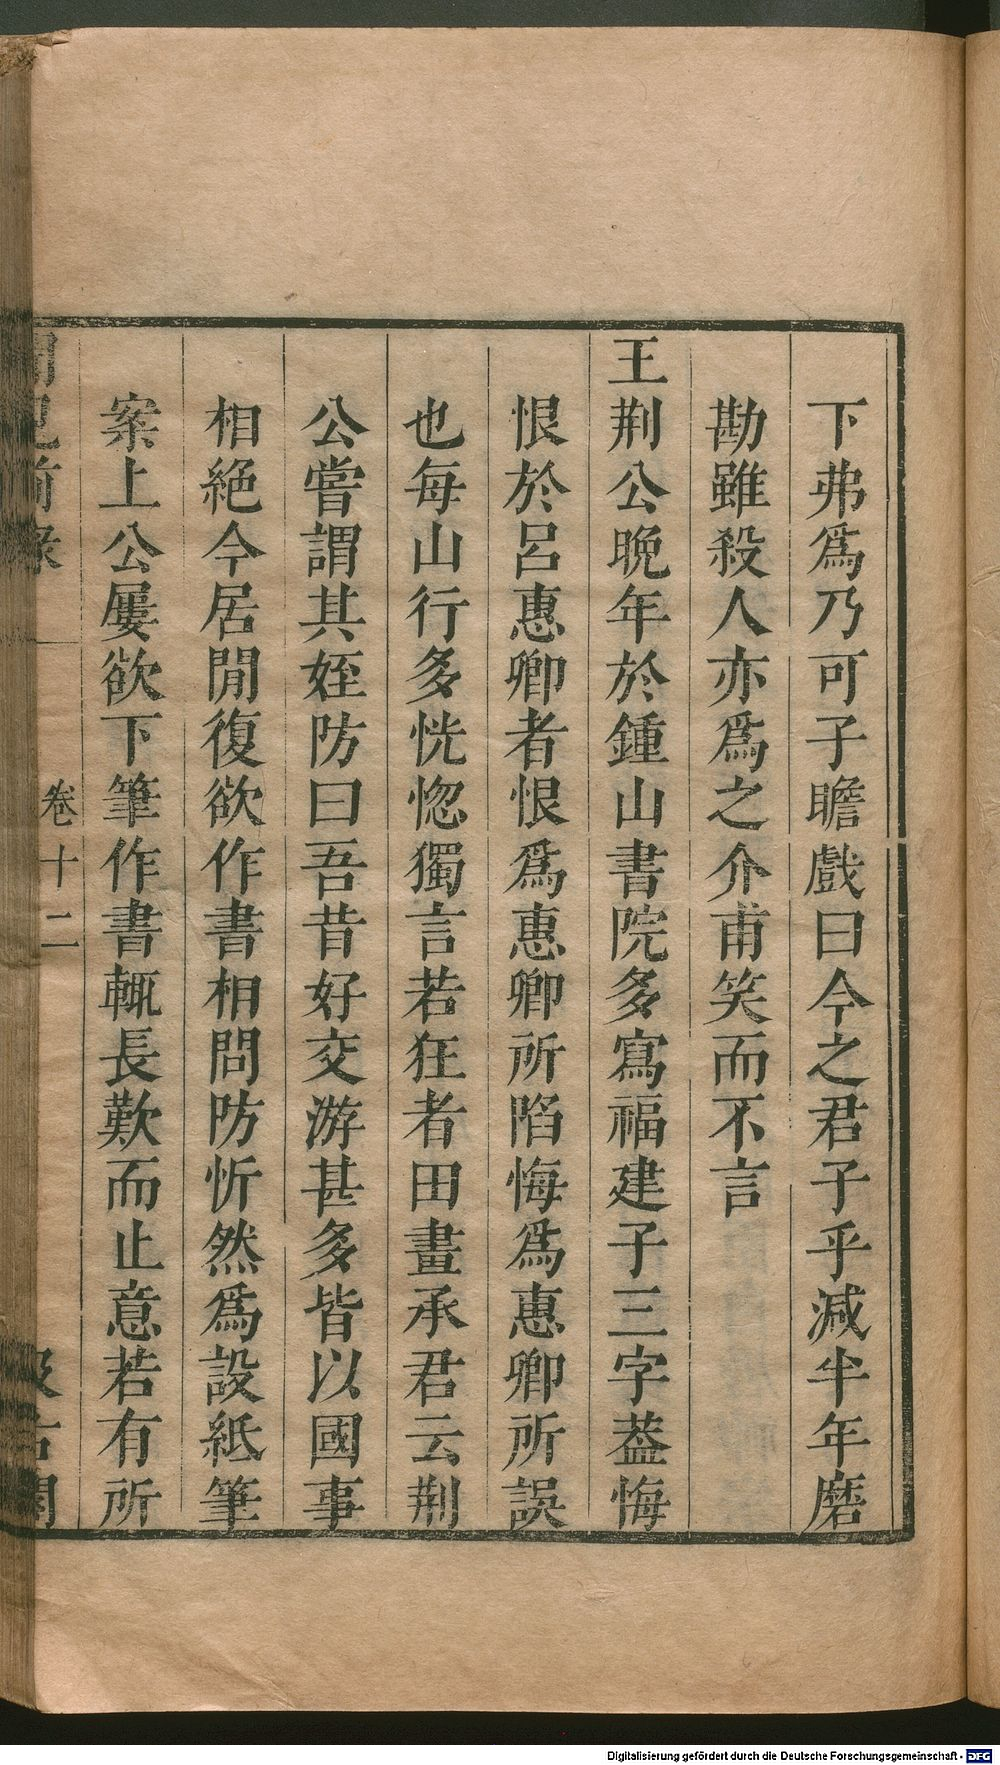 下弗爲乃可子瞻戲曰今之君子乎減半年磨
勘雖殺人亦爲之介甫笑而不言
王荆公晚年於鍾山書院多寫福建子三字葢悔
恨於呂惠卿者恨爲惠卿所陷悔爲惠卿所誤
也每山行多恍惚獨言若狂者田畫承君云荆
公嘗謂其姪防曰吾昔好交游甚多皆以國事
相絶今居閒復欲作書相問防忻然爲設紙筆
案上公屢欲下筆作書輒長歎而止意若有所
聞見前錄 卷十二 汲古閣
Digitalisierung gefördert durch die Deutsche Forschungsgemeinschaft - DFG